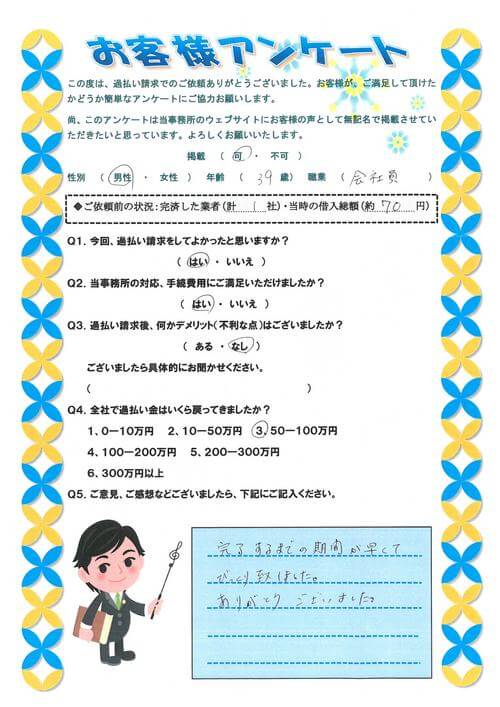 お客様アンケート
この度は、過払い請求でのご依頼ありがとうございました。お客様が、ご満足して頂けた
かどうか簡単なアンケートにご協力お願いします。
尚、このアンケートは当事務所のウェブサイトにお客様の声として無記名で掲載させてい
ただきたいと思っています。よろしくお願いいたします。
掲載 ( 可 ・ 不可 )
性別 ( 男性 ・ 女性 ) 年齢 ( 39 歳 ) 職業 ( 会社員 )
◆ご依頼前の状況:完済した業者(計 1 社)・当時の借入総額(約 70 円)
Q1. 今回、過払い請求をしてよかったと思いますか?
( はい ・ いいえ )
Q2. 当事務所の対応、手続費用にご満足いただけましたか?
( はい ・ いいえ )
Q3. 過払い請求後、何かデメリット(不利な点)はございましたか?
( ある ・ なし )
ございましたら具体的にお聞かせください。
( )
Q4. 全社で過払い金はいくら戻ってきましたか?
1、0-10万円 2、10-50万円 3、50-100万円
4、100-200万円 5、200-300万円
6、300万円以上
Q5. ご意見、ご感想などございましたら、下記にご記入ください。
完了するまでの期間が早くて
びっくり致しました。
ありがとうございました。